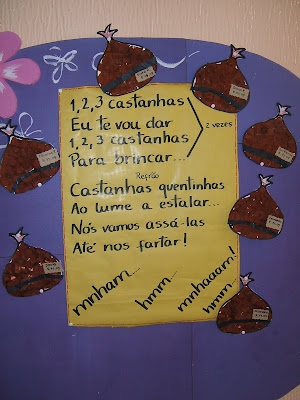 1, 2, 3 castanhas
Eu te vou dar
1, 2, 3 castanhas
Para brincar...
2 vezes
Refrão
Castanhas quentinhas
Ao lume a estalar...
Nós vamos assá-las
Até nos fartar!
mnham...
hmm...
mnhaaam!
hmm...